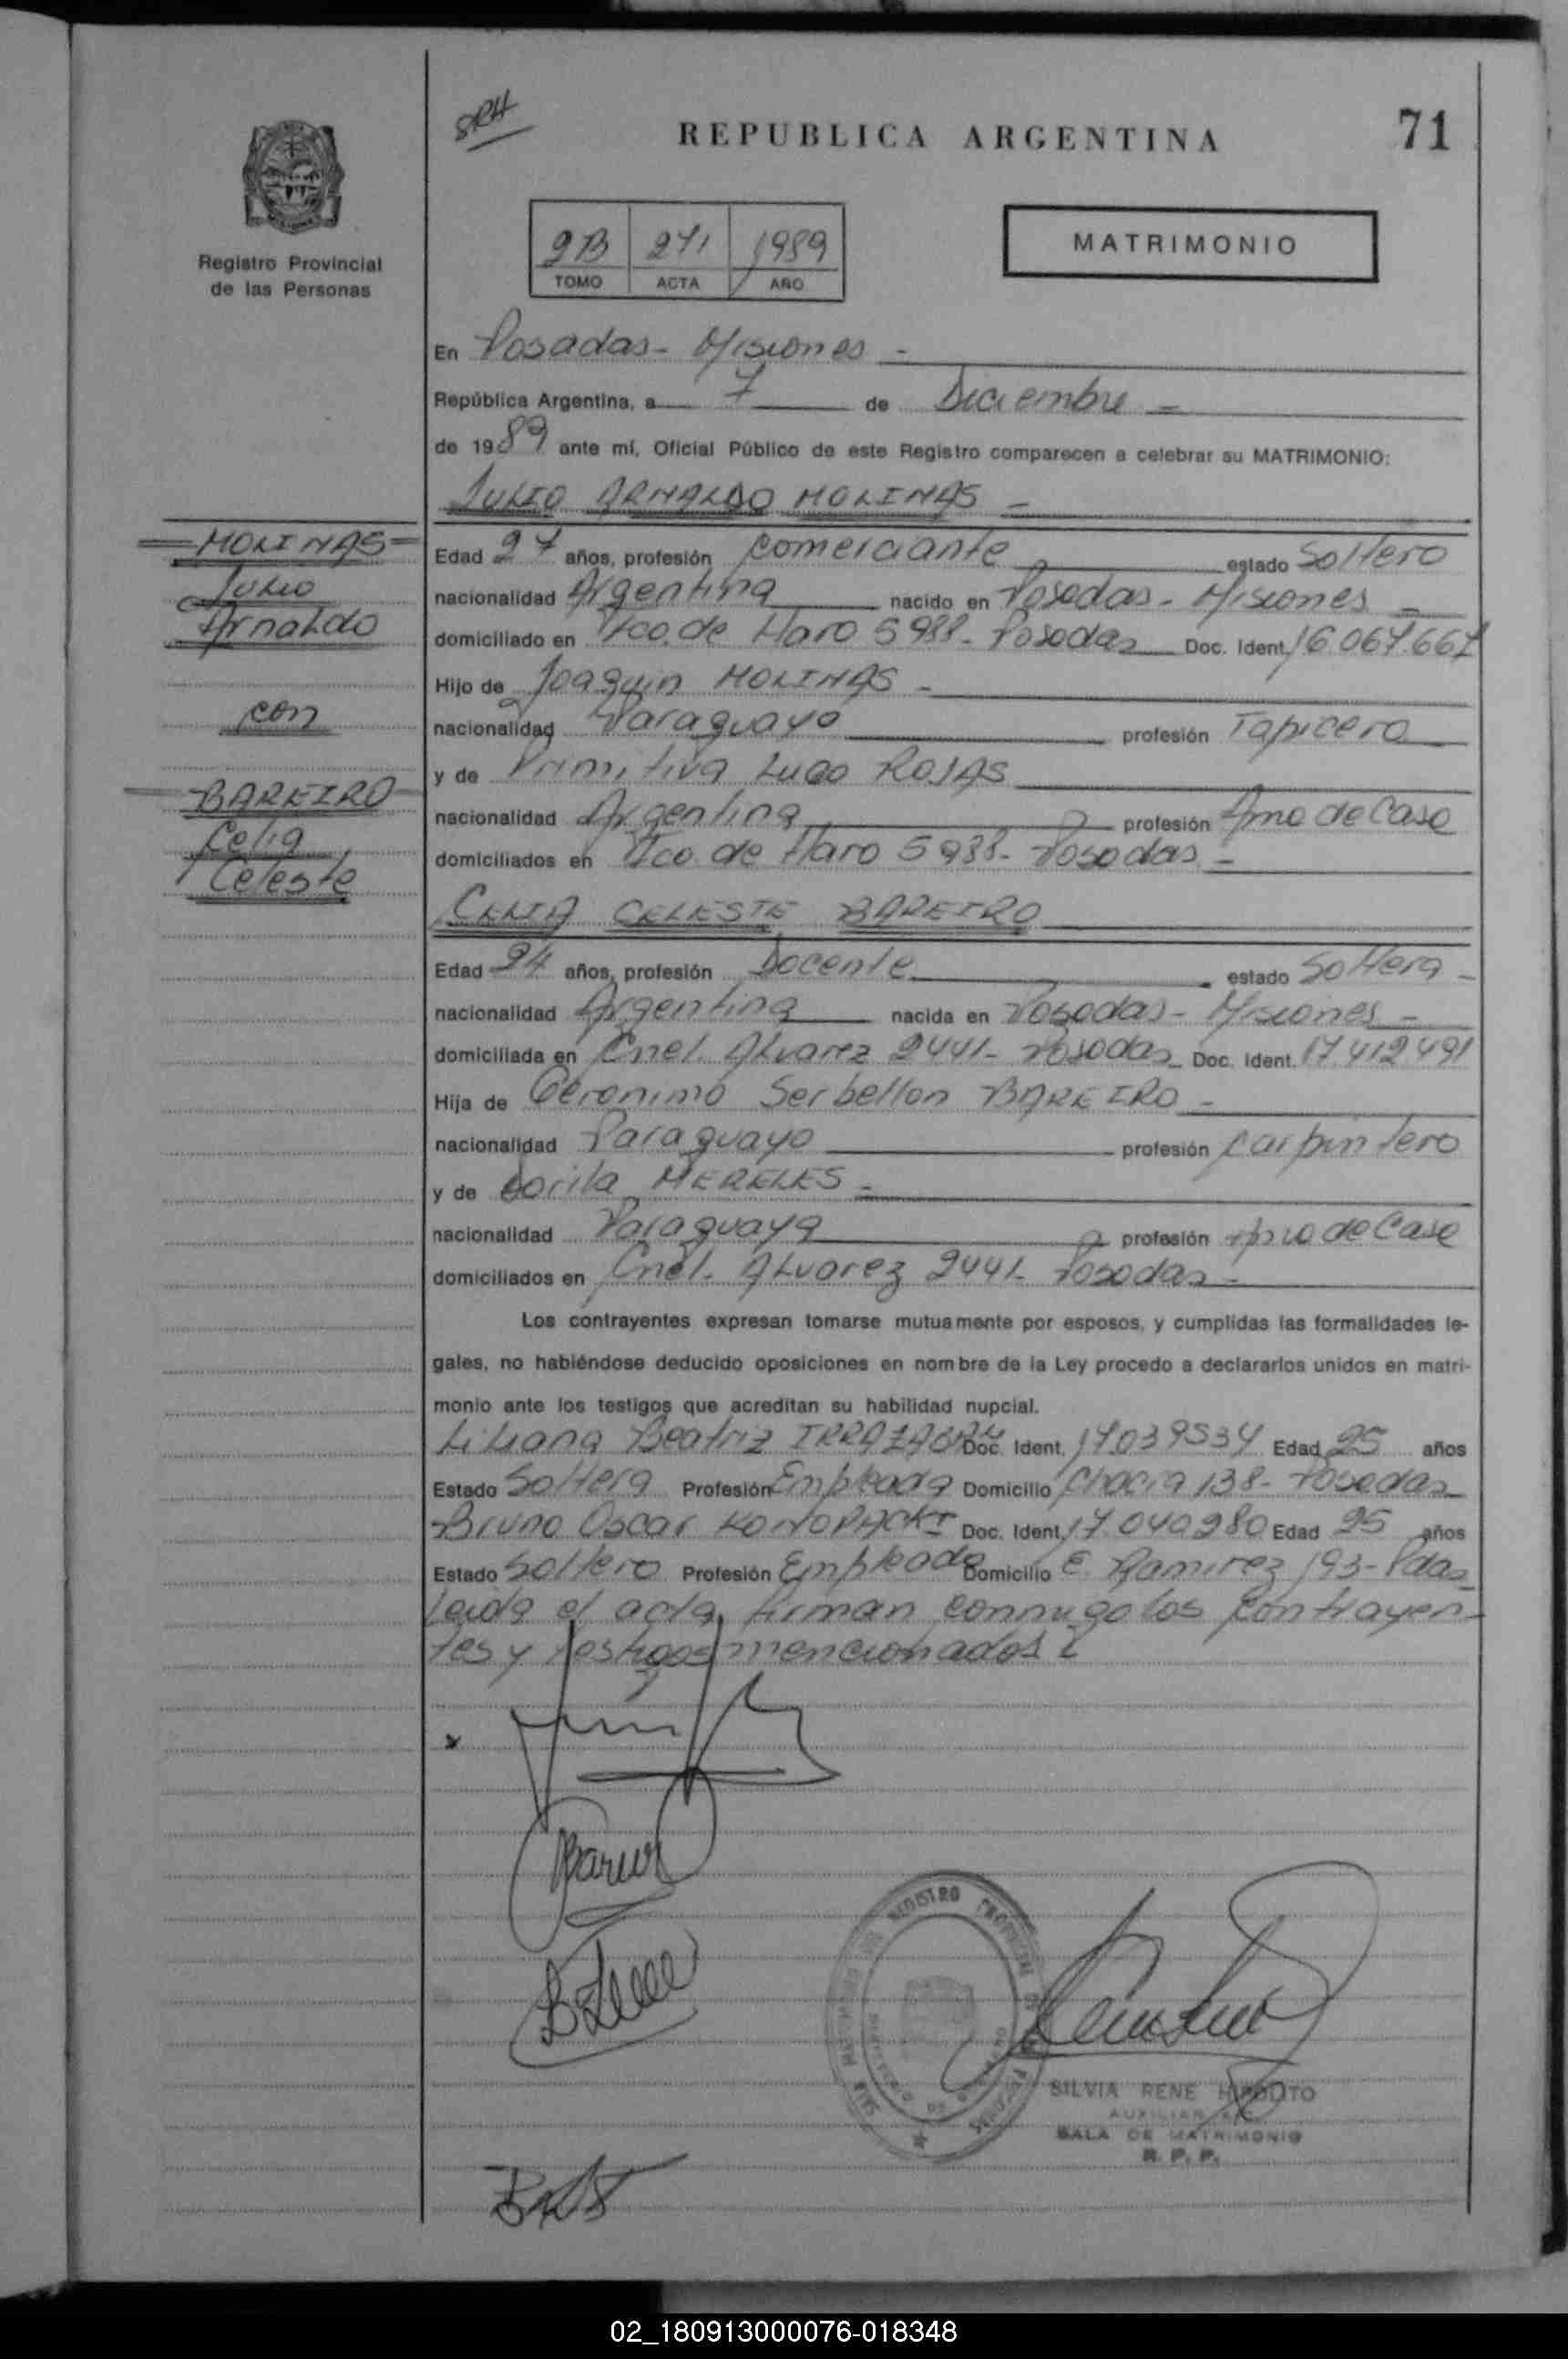 SRH
REPUBLICA ARGENTINA
71
Registro Provincial
de las Personas
2B 271 1989
TOMO ACTA AÑO
MATRIMONIO
En Posadas - Misiones -
República Argentina, a 7 de Diciembre -
de 1989 ante mí, Oficial Público de este Registro comparecen a celebrar su MATRIMONIO:
JULIO ARNALDO MOLINAS -
MOLINAS
Julio
Arnaldo
con
BAREIRO
Celia
Celeste
Edad 27 años, profesión Comerciante estado Soltero
nacionalidad Argentina nacido en Posadas - Misiones -
domiciliado en Fco. de Haro 5988 - Posadas Doc. Ident. 16.067.667
Hijo de Joaquin MOLINAS -
nacionalidad Paraguaya profesión Tapicero
y de Primitiva Lugo ROJAS
nacionalidad Argentina profesión Ama de Casa
domiciliados en Fco. de Haro 5988 - Posadas -
CELIA CELESTE BAREIRO
Edad 24 años, profesión Docente estado Soltera -
nacionalidad Argentina nacida en Posadas - Misiones -
domiciliada en Cnel. Alvarez 2441 - Posadas Doc. Ident. 17 412 491
Hija de Geronimo Serbellon BAREIRO -
nacionalidad Paraguayo profesión Carpintero
y de Lorila MERELES -
nacionalidad Paraguaya profesión Ama de Casa
domiciliados en Cnel. Alvarez 2441 - Posadas -
Los contrayentes expresan tomarse mutuamente por esposos, y cumplidas las formalidades le-
gales, no habiéndose deducido oposiciones en nombre de la Ley procedo a declararlos unidos en matri-
monio ante los testigos que acreditan su habilidad nupcial.
Liliana Beatriz Doc. Ident. 17.039534 Edad 25 años
Estado Soltera Profesión Empleada Domicilio 138 - Posadas
Bruno Oscar KONOPACKI Doc. Ident. 17.040280 Edad 25 años
Estado Soltero Profesión Empleado Domicilio E. Ramirez 193 - Pdas
Leida el acta, firman conmigo los contrayen-
tes y testigos mencionados
SILVIA RENE HIPOLITO
AUXILIAR
SALA DE MATRIMONIO
R. P. P.
02_180913000076-018348